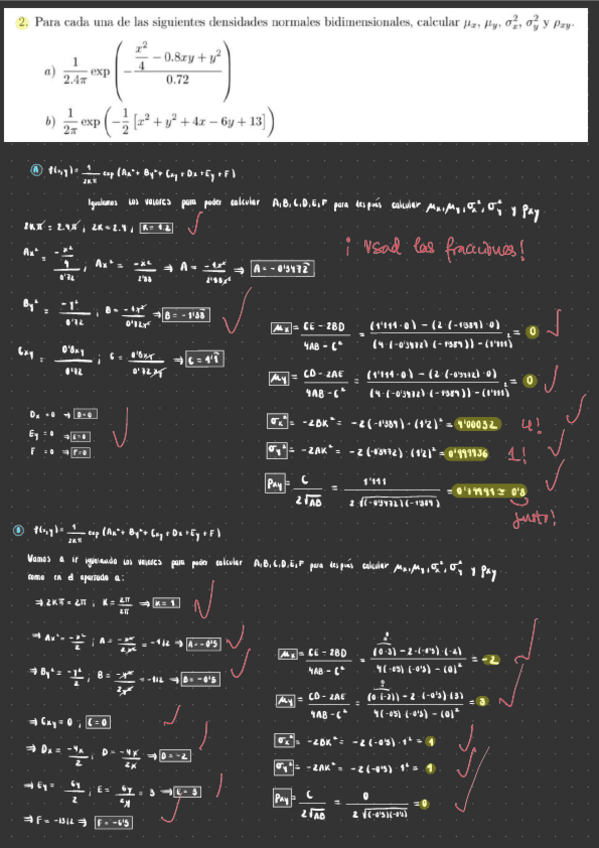 2. Para cada una de las siguientes densidades normales bidimensionales, calcular μx, μy, σx², σy² y ρxy.
a) 1/2.4π exp(−(x²/4 − 0.8xy + y²)/0.72)
b) 1/2π exp(−1/2 [x² + y² + 4x − 6y + 13])
A f(x,y) = 1/2Kπ exp (Ax² + By² + Cxy + Dx + Ey + F)
Igualamos los valores para poder calcular A,B,C,D,E,F para después calcular μx, μy, σx², σy² y ρxy
2Kπ = 2.4π ; 2K = 2.4 ; K = 1.2
¡ Usad las fracciones!
Ax² = −x²/4 / 0'72 ; Ax² = −x²/2'88 ⇒ A = −1x²/2'88x² ⇒ A = −0'3472
By² = −y²/0'72 ; B = −1y²/0'72y² ⇒ B = −1'38
Cxy = 0'8xy/0'72 ; C = 0'8xy/0'72xy ⇒ C = 1'1
Dx = 0 ⇒ D=0
Ey = 0 ⇒ E=0
F = 0 ⇒ F=0
μx = CE − 2BD / 4AB − C² = (1'111·0) − (2·(−1'389)·0) / (4·(−0'3472)·(−1'389)) − (1'111)² = 0
μy = CD − 2AE / 4AB − C² = (1'111·0) − (2·(−0'3472)·0) / (4·(−0'3472)·(−1'389)) − (1'111)² = 0
σx² = −2BK² = −2(−1'389)·(1'2)² = 4'00032 4!
σy² = −2AK² = −2(−0'3472)·(1'2)² = 0'999936 1!
ρxy = C / 2√AB = 1'111 / 2√(−0'3472)(−1'389) = 0'79991 ≃ 0'8
justo!
B f(x,y) = 1/2Kπ exp (Ax² + By² + Cxy + Dx + Ey + F)
Vamos a ir igualando los valores para poder calcular A,B,C,D,E,F para después calcular μx, μy, σx², σy² y ρxy
como en el apartado a:
⇒ 2Kπ = 2π ; K = 2π/2π ⇒ K = 1
⇒ Ax² = −x²/2 ; A = −x²/2x² = −1/2 ⇒ A = −0'5
⇒ By² = −y²/2 ; B = −y²/2y² = −1/2 ⇒ B = −0'5
⇒ Cxy = 0 ; C = 0
⇒ Dx = −4x/2 ; D = −4x/2x ⇒ D = −2
⇒ Ey = 6y/2 ; E = 6y/2y = 3 ⇒ E = 3
⇒ F = −13/2 ⇒ F = −6'5
μx = CE − 2BD / 4AB − C² = (0·3) − 2·(−0'5)·(−2) / 4(−0'5)·(−0'5) − (0)² = −2
μy = CD − 2AE / 4AB − C² = (0·(−2)) − 2·(−0'5)·(3) / 4(−0'5)·(−0'5) − (0)² = 3
σx² = −2BK² = −2(−0'5)·1² = 1
σy² = −2AK² = −2(−0'5)·1² = 1
ρxy = C / 2√AB = 0 / 2√(−0'5)(−0'5) = 0